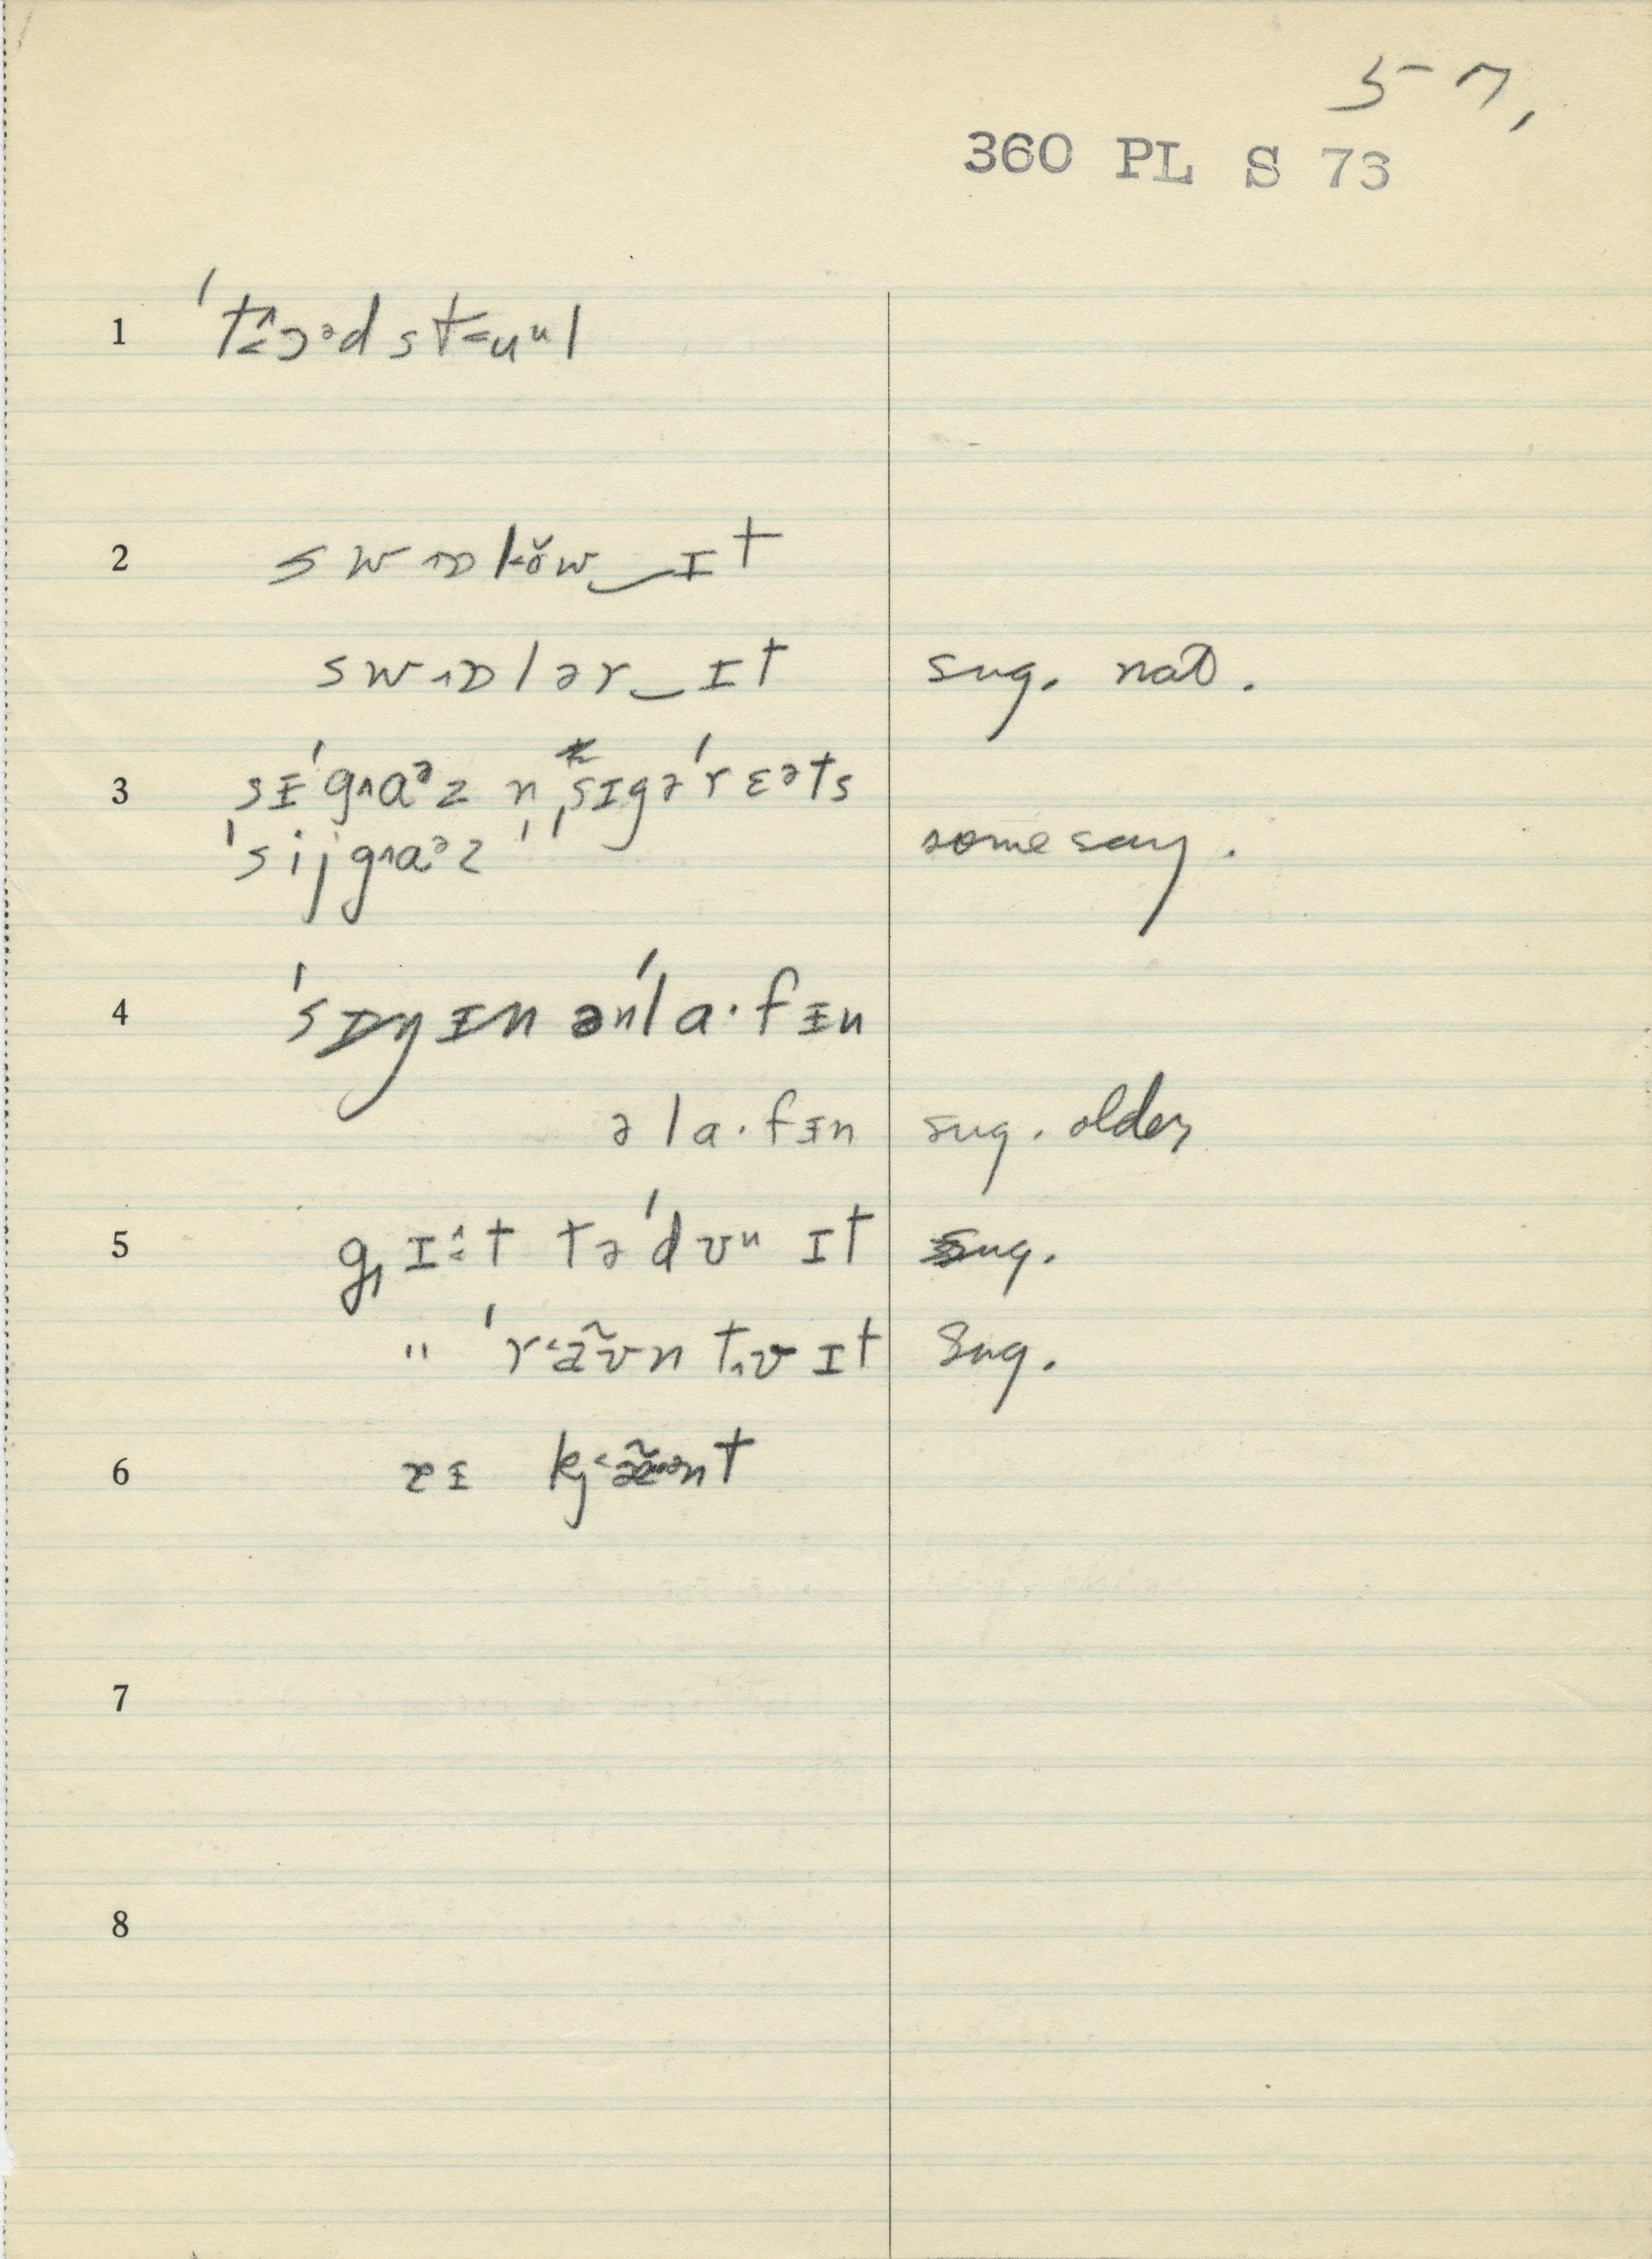 57,
360 PL S 73
1 ˈtɔᵊd stuᵘl
2 swɒlow‿ɪt
swɒlər‿ɪt sug. nat.
3 sɪ̵ˈgaᵊz n ˌsɪgəˈrɛəts
ˈsijgaᵊz " some say.
4 ˈsɪŋɪn ənˈla·fɪ̵n
əla·fɪ̵n sug. older
5 gɪt təˈdʊᵘ ɪt sug.
" ˈræ̃ʊn tʊ ɪt sug.
6 kæ̃nt
7
8